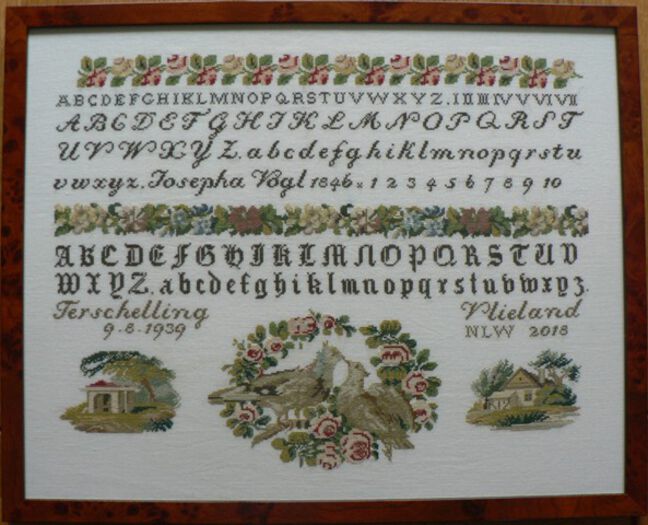 ABCDEFGHIKLMNOPQRSTUVWXYZ.I II III IV V VI VII
ABCDEFGHIKLMNOPQRST
UVWXYZ.abcdefghiklmnopqrstu
vwxyz. Josepha Vogl 1846. 1 2 3 4 5 6 7 8 9 10
ABCDEFGHIKLMNOPQRSTUV
WXYZ.abcdefghiklmnopqrstuvwxyz.
Terschelling Vlieland
9-8-1939 NLW 2018